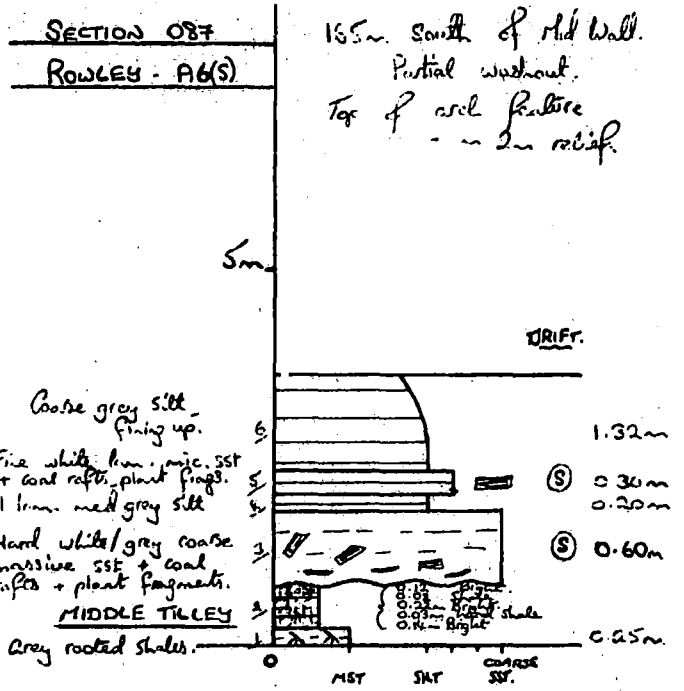 SECTION 087
ROWLEY - A6(S)
165m South of Mid Wall.
Partial washout.
Top of arch feature
- ~ 2m relief.
5m
DRIFT.
Coarse grey silt
fining up.
6
1.32m
Fine white lam. mic. sst
+ coal rafts, plant frags.
5
S
0.30m
lam. med grey silt
4
0.20m
Hard white/grey coarse
massive sst + coal
rafts + plant fragments.
3
S
0.60m
MIDDLE TILLEY
2
Bright
Bright
0.03m shale
0.14m Bright
Grey rooted shales.
1
0.25m
0
MST
SILT
COARSE
SST.